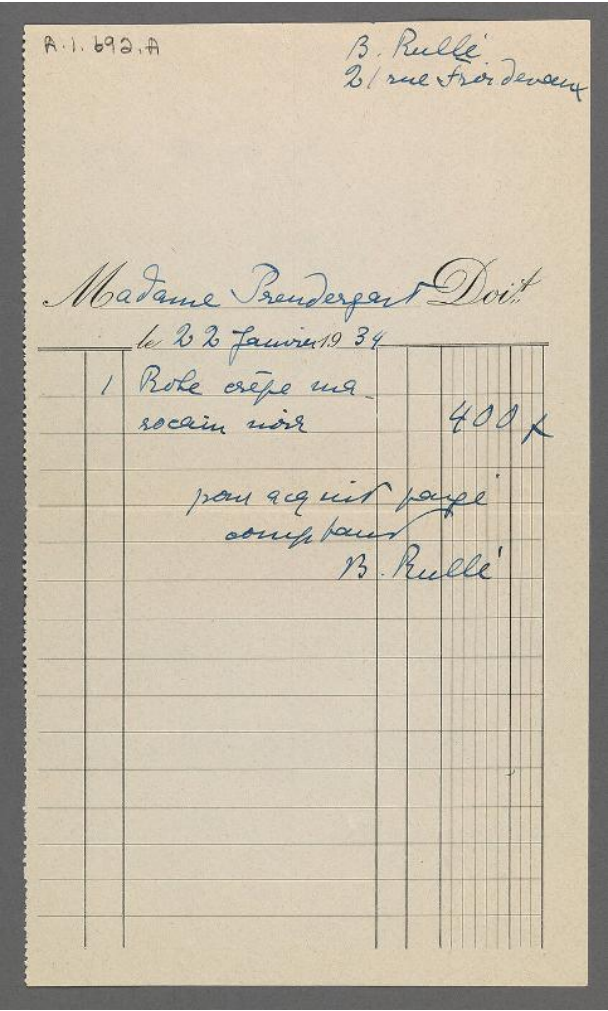 A.1.692.A
B. Rullé
21 rue Froidevaux
Madame Prendergast Doit
le 22 Janvier 1934
1 Robe crêpe ma
rocain noir 400 f
pour acquit payé
comptant
B. Rullé